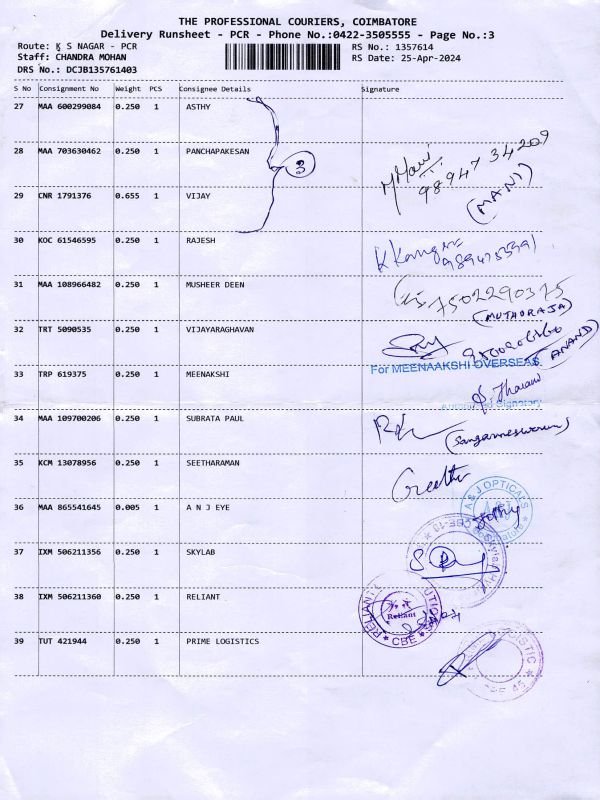 THE PROFESSIONAL COURIERS, COIMBATORE
Delivery Runsheet - PCR - Phone No.:0422-3505555 - Page No.:3
Route: K S NAGAR - PCR
RS No.: 1357614
Staff: CHANDRA MOHAN
RS Date: 25-Apr-2024
DRS No.: DCJB135761403
S No Consignment No Weight PCS Consignee Details Signature
27 MAA 600299084 0.250 1 ASTHY
28 MAA 703630462 0.250 1 PANCHAPAKESAN
3
M Mani
98947 34209
29 CNR 1791376 0.655 1 VIJAY
(MANI)
30 KOC 61546595 0.250 1 RAJESH
31 MAA 108966482 0.250 1 MUSHEER DEEN
7502290375
(MUTHURAJA)
32 TRT 5090535 0.250 1 VIJAYARAGHAVAN
(ANAND)
For MEENAAKSHI OVERSEAS
33 TRP 619375 0.250 1 MEENAKSHI
Authorised Signatory
34 MAA 109700206 0.250 1 SUBRATA PAUL
(Sangameswaran)
35 KCM 13078956 0.250 1 SEETHARAMAN
Geetha
A & J OPTICALS
36 MAA 865541645 0.005 1 A N J EYE
37 IXM 506211356 0.250 1 SKYLAB
38 IXM 506211360 0.250 1 RELIANT
Reliant
CBE
39 TUT 421944 0.250 1 PRIME LOGISTICS